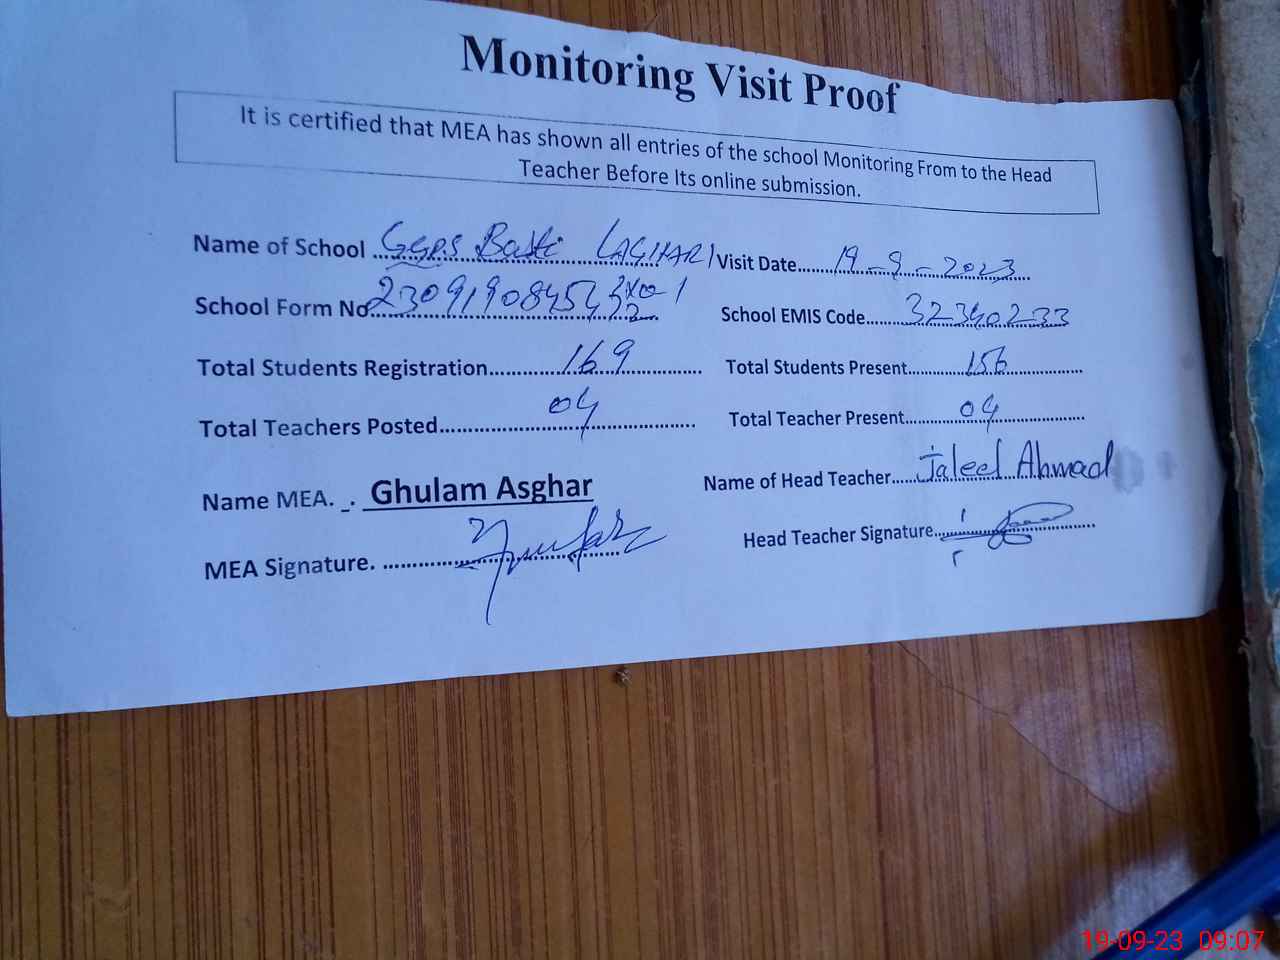 Monitoring Visit Proof
It is certified that MEA has shown all entries of the school Monitoring From to the Head
Teacher Before Its online submission.
Name of School GGPS Basti LAGHARI Visit Date 19-9-2023
School Form No School EMIS Code 32340233
Total Students Registration 169 Total Students Present 156
Total Teachers Posted 04 Total Teacher Present 04
Name MEA. _. Ghulam Asghar Name of Head Teacher Jaleel Ahmad
MEA Signature. Head Teacher Signature
19-09-23 09:07